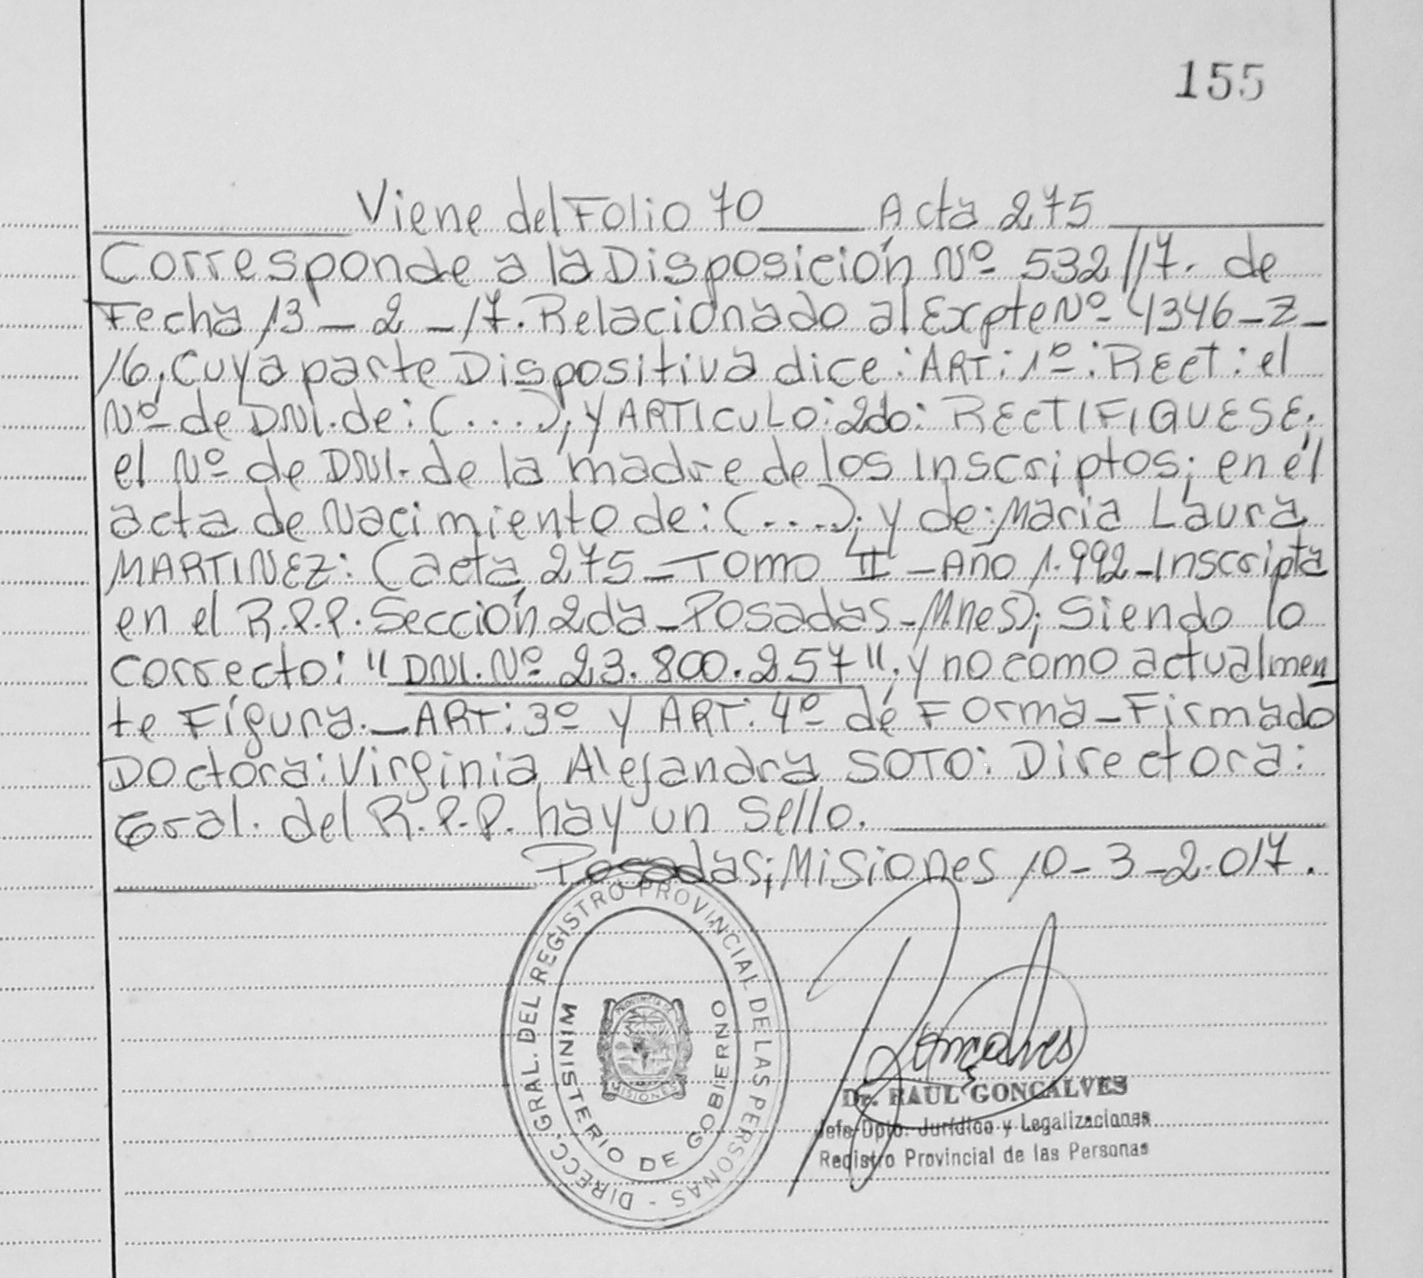 155
Viene del Folio 70 Acta 275
Corresponde a la Disposición Nº 532//17. de
Fecha 13-2-17. Relacionado al Expte Nº 4346-Z-
16; Cuya parte Dispositiva dice: ART: 1º: RECt: el
Nº de DNI. de: (....); y ARTICULO: 2do: RECTIFIQUESE;
el Nº de DNI. de la madre de los Inscriptos; en el
acta de Nacimiento de: (....); y de: Maria Laura
MARTINEZ: (acta 275-Tomo II-Año 1.992-Inscripta
en el R.P.P. Sección 2da-Posadas-Mnes); Siendo lo
correcto: "DNI. Nº 23.800.257"; y no como actualmen
te Figura.-ART: 3º y ART. 4º de Forma-Firmado
Doctora: Virginia Alejandra SOTO: Directora:
Gral. del R.P.P. hay un Sello.
Posadas; Misiones 10-3-2.017.
DIRECC. GRAL. DEL REGISTRO PROVINCIAL DE LAS PERSONAS -
MINISTERIO DE GOBIERNO
PROVINCIA DE
MISIONES
Gonçalves
Dr. RAUL GONÇALVES
Jefe Dpto. Jurídico y Legalizaciones
Registro Provincial de las Personas